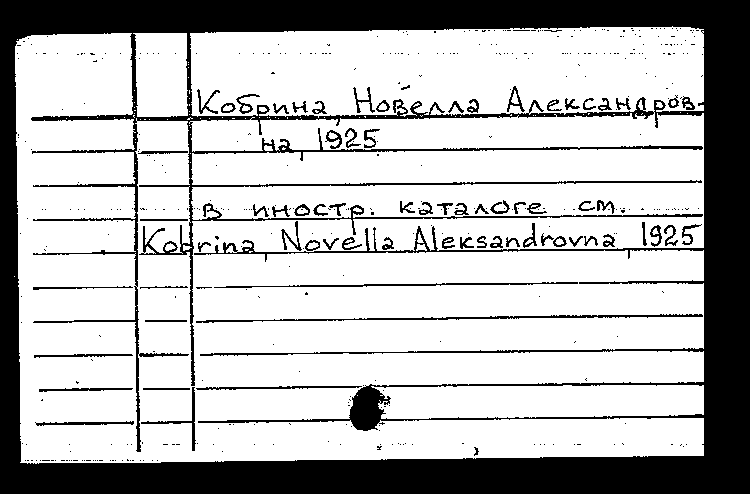 Кобрина, Новелла Александров-
на, 1925
в иностр. каталоге см.
Kobrina, Novella Aleksandrovna, 1925